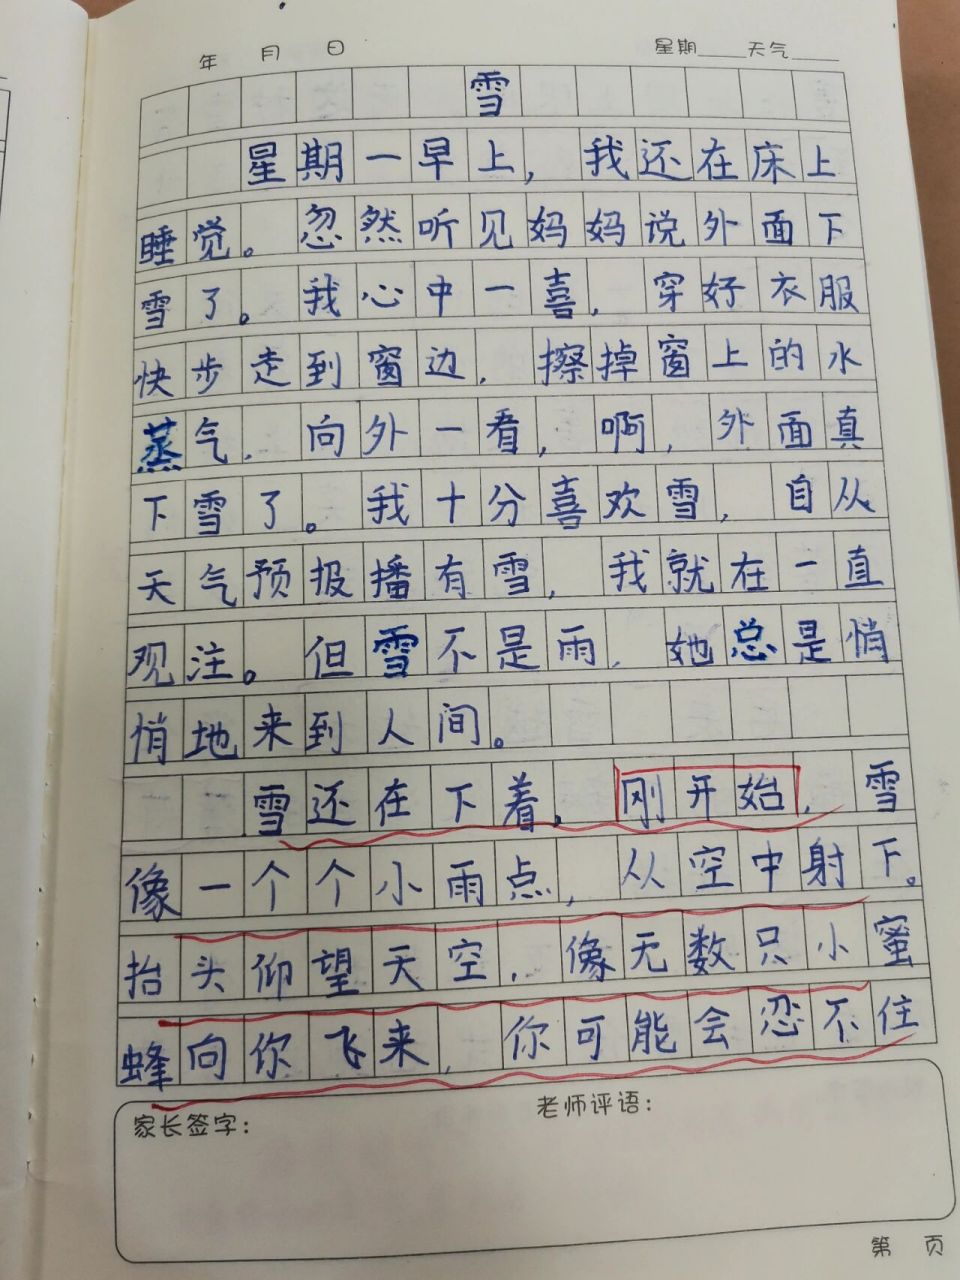 年 月 日 星期____天气____
雪
星期一早上，我还在床上
睡觉。忽然听见妈妈说外面下
雪了。我心中一喜，穿好衣服
快步走到窗边，擦掉窗上的水
蒸气，向外一看，啊，外面真
下雪了。我十分喜欢雪，自从
天气预报播有雪，我就在一直
观注。但雪不是雨，她总是悄
悄地来到人间。
雪还在下着。刚开始，雪
像一个个小雨点，从空中射下。
抬头仰望天空，像无数只小蜜
蜂向你飞来，你可能会忍不住
家长签字： 老师评语：
第 页